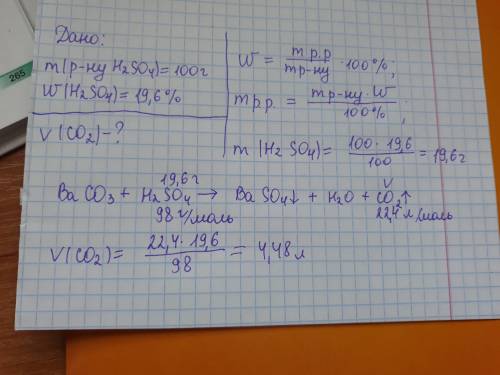 265
Дано:
m(р-ну H₂SO₄)=100г
W(H₂SO₄)=19,6%
V(CO₂)-?
W = mр.р / mр-ну · 100%;
mр.р. = mр-ну · W / 100% ;
m (H₂SO₄)= 100 · 19,6 / 100 = 19,6г
19,6г V
BaCO₃ + H₂SO₄ → BaSO₄↓ + H₂O + CO₂↑
98 г/моль 22,4 л/моль
V(CO₂)= 22,4 · 19,6 / 98 = 4,48л